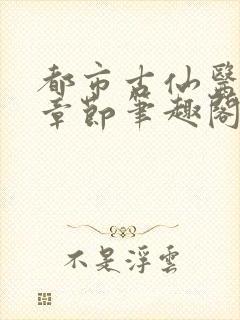 都市古仙醫
章節筆趣閣
不是浮雲